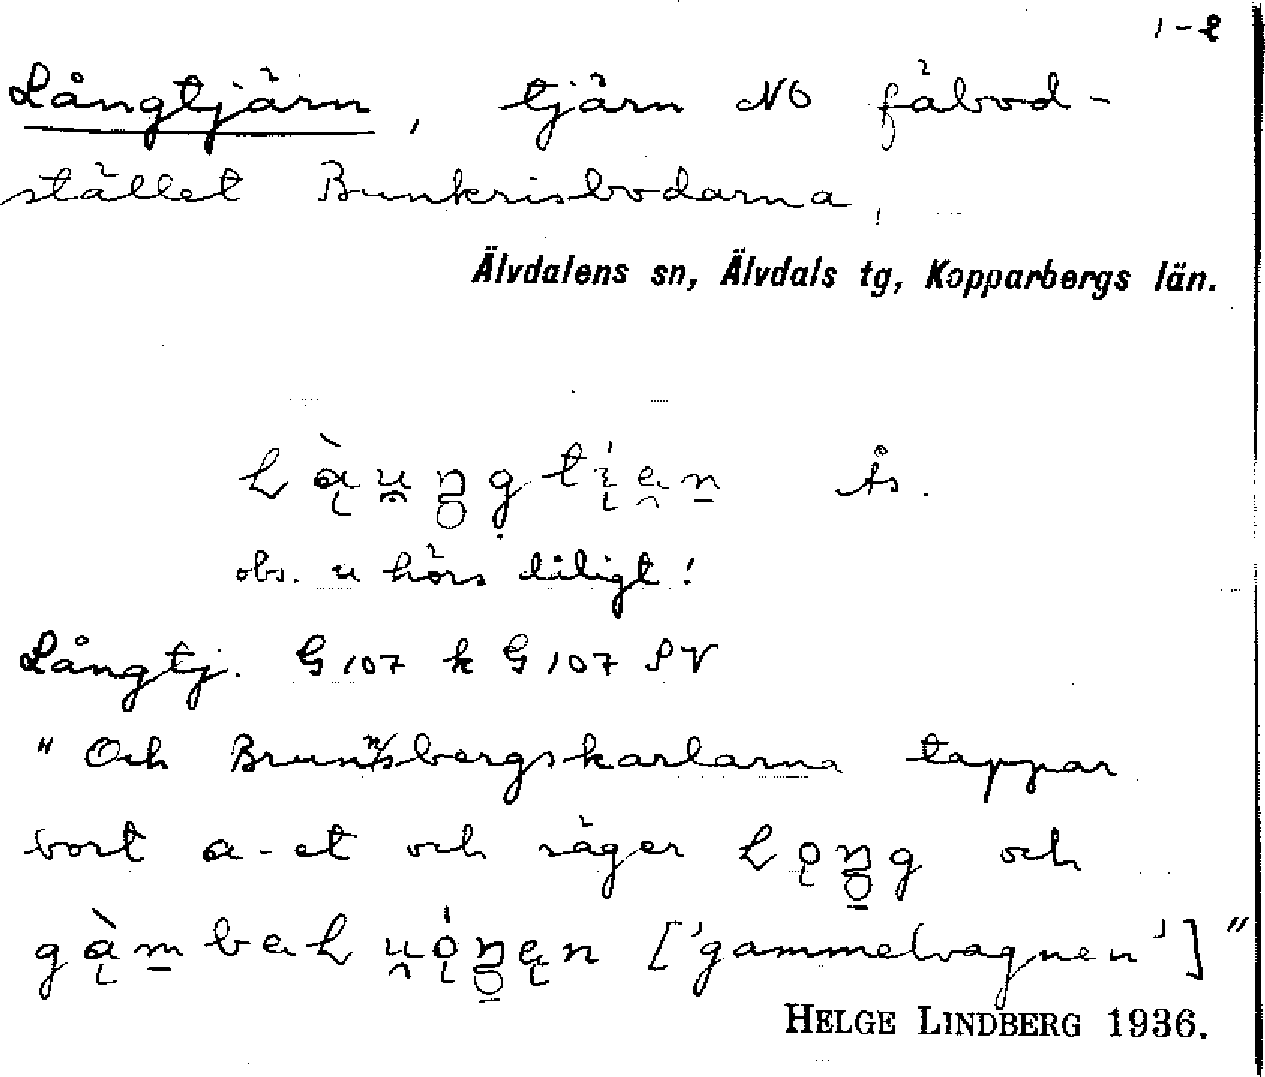 1-2
Långtjärn, tjärn NO fäbod-
stället Bunkrisbodarna,
Älvdalens sn, Älvdals tg, Kopparbergs län.
Ås.
obs. u hörs tiligt!
Långtj. G 107 k G 107 SV
"Och Brunnsbergskarlarna tappar
bort a-et och säger och
['gammelvagnen']"
HELGE LINDBERG 1936.